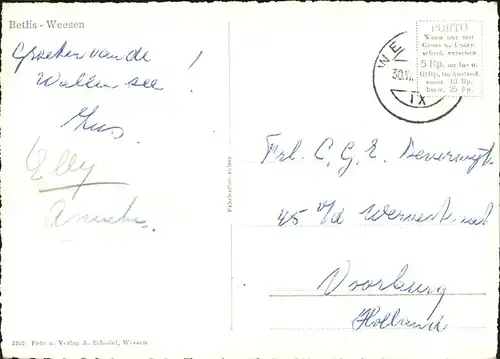 Betlis - Weesen
Groeten van de
Wallensee!
Gus.
Elly
PORTO
Wenn nur mit
Gruss u. Unter-
schrift versehen
5 Rp. im In- u.
10 Rp. im Ausland
sonst 10 Rp.
bezw. 25 Rp.
WE
30.
IX
Fabrikation suisse
Frl. C. G. E. Beverwijk
45 v/d Werve
Voorburg
Holland
Foto u. Verlag A. Echsdel, Weesen